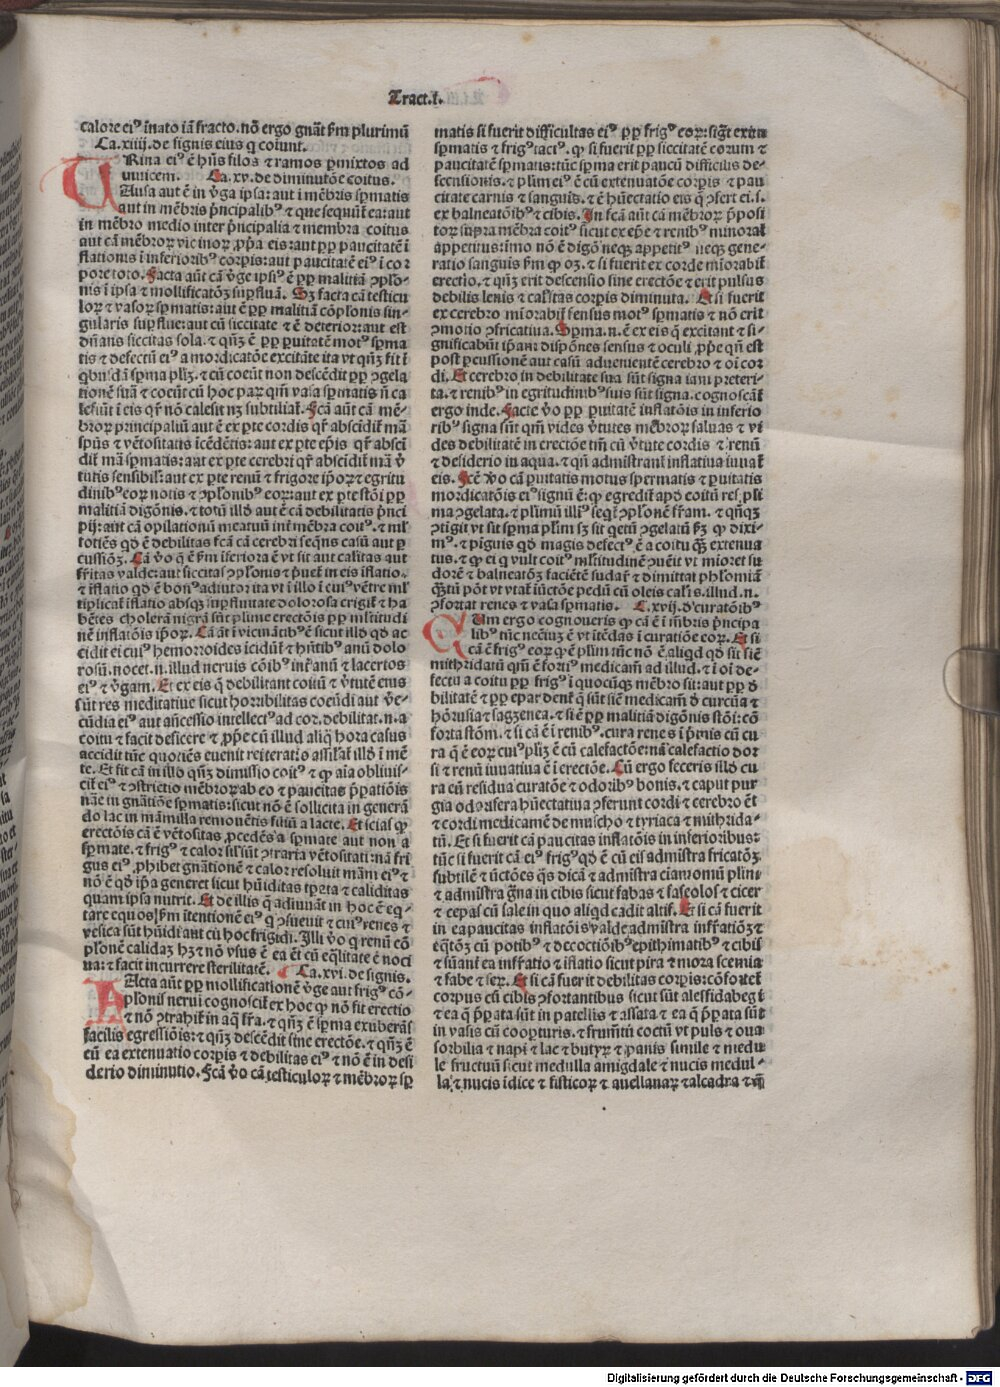 Tract.I.
calore eiꝰ īnato iā fracto. nō ergo gnāt ẜm plurimū
Ca.xiiij. de signis eius q̇ coiunt.
URina eiꝰ ē hn̄s filos ⁊ ramos ꝑmixtos ad
uuicem. Ca.xv. de diminutōe coitus.
Ausa aut ē in v̄ga ipsa: aut ī mēbris spmatis
aut in mēbris p̄ncipalibꝰ ⁊ que sequunt ea: aut
in mēbro medio inter p̄ncipalia ⁊ membra coitus
aut cā mēbroꝝ vicinoꝝ ꝓpa eis: aut ꝓp paucitatē ī
flationis ī inferioribꝰ corpis: aut paucitatē eiꝰ ī cor
pore toto. Facta aūt cā v̄ge ipsiꝰ ē ꝓp malitiā ꝯplo
nis ī ipsa ⁊ mollificatōꝫ supfluā. Sꝫ facta cā testicu
loꝝ ⁊ vasoꝝ spmatis: aut ē ꝓp malitiā cōplonis sin
gularis supflue: aut cū siccitate ⁊ ē deterior: aut est
dn̄ans siccitas sola. ⁊ qn̄ꝫ ē ꝓp puitatē motꝰ spma
tis ⁊ defectū eiꝰ a mordicatōe excitāte ita vt qn̄ꝫ fit ī
q̇busdā spma pliꝫ. ⁊ cū coeūt non descēdit ꝓp ꝯgela
tionē suā ⁊ coeūt cū hoc paꝝ qm̄ vasa spmatis n̄ ca
lefiūt ī eis qr̄ nō calefit nꝫ subtiliat̄. Fcā aūt cā mē
broꝝ principaliū aut ē ex pte cordis qr̄ abscidit̄ mā
spūs ⁊ vētositatis īcēdētis: aut ex pte epis qr̄ absci
dit̄ mā spmatis: aut ex pte cerebri qr̄ abscidit̄ mā v̄
tutis sensibil̄: aut ex pte renū ⁊ frigore ipoꝝ ⁊ egritu
dinibꝰ eoꝝ notis ⁊ ꝯplonibꝰ eoꝝ: aut ex pte stōi ꝓp
malitiā digōnis. ⁊ totū illd̄ aut ē cā debilitatis p̄nci
pij: aut cā opilationū meatuū int̄ mēbra coitꝰ. ⁊ ml̄
totiēs qd̄ ē debilitas fcā cā cerebri seq̄ns casū aut p
cussiōꝫ. Ca v̄o q̄ ē ẜm īferiora ē vt sit aut calitas aut
fr̄itas valde: aut siccitas ꝯplonis ⁊ puet̄ in eis īflatio.
⁊ īflatio qd̄ ē bonꝰ adiutor ita vt ī illo ī cuiꝰ vētre ml̄
tiplicat̄ īflatio absqꝫ supfluitate dolorosa erigit̄ ⁊ ha
bētes cholerā nigrā sūt plume erectōis ꝓp ml̄titudi
nē inflatōis ipoꝝ. Ca āt ī vicinātibꝰ ē sicut illd̄ qd̄ ac
cidit ei cuiꝰ hemorroides īcidūt ⁊ hn̄tibꝰ anū dolo
rosū. nocet .n. illud neruis cōibꝰ int̄ anū ⁊ lacertos
eiꝰ ⁊ v̄gam. Et ex eis q̄ debilitant coitū ⁊ v̄tutē eius
sūt res meditatiue sicut horribilitas coeūdi aut v̄e
cūdia eiꝰ aut an̄cessio intellectꝰ ad cor. debilitat .n. a
coitu ⁊ facit deficere ⁊ ꝓpe cū illud aliq̄ hora casus
accidit tūc quotiēs euenit reiterat̄ ⁊ assilat illd̄ ī mē
te. Et fit cā in illo qn̄ꝫ dimissio coitꝰ ⁊ ꝙ aīa obliuis
cit̄ eiꝰ ⁊ ꝯstrictio mēbroꝝ ab eo ⁊ paucitas p̄patiōis
nāe in gnātiōe spmatis: sicut nō ē sollicita in generā
do lac in māmilla remouētis filiū a lacte. Et scias ꝙ
erectōis cā ē vētositas ꝓcedēs a spmate aut non a
spmate. ⁊ frigꝰ ⁊ calor sil̄ sūt ꝯtraria vētositati: nā fri
gus eiꝰ ꝓhibet gnātionē ⁊ calor resoluit mām eiꝰ ⁊
nō ē qd̄ ipa generet sicut hūiditas tpata ⁊ caliditas
quam ipsa nutrit. Et de illis q̄ adiuuāt in hoc ē eq̇
tare equos ẜm ītentionē eiꝰ q̇ ꝯsueuit ⁊ cuiꝰ renes ⁊
vesica sūt hūidi aut cū hoc frigidi. Illi v̄o q̇ renū cō
plonē calidaꝫ hꝫ ⁊ nō vsus ē ea ēt cū eq̄litate ē noci
ua: ⁊ facit incurrere sterilitatē. Ca.xvi. de signis.
FActa aūt ꝓp mollificationē v̄ge aut frigꝰ cō
plonis nerui cognoscit̄ ex hoc ꝙ nō fit erectio
⁊ nō ꝯtrahit̄ in aq̄ fr̄a. ⁊ qn̄ꝫ ē spma exuberās
facilis egressiōis: ⁊ qn̄ꝫ descēdit sine erectōe. ⁊ qn̄ꝫ ē
cū ea extenuatio corpis ⁊ debilitas eiꝰ ⁊ nō ē in desi
derio diminutio. Fcā v̄o cā testiculoꝝ ⁊ mēbroꝝ sp
matis si fuerit difficultas eiꝰ ꝓp frigꝰ eoꝝ: sigt̄ exitꝰ
spmatis ⁊ frigꝰ tactꝰ. ꝙ si fuerit ꝓp siccitatē eorum ⁊
paucitatē spmatis: tūc spma erit paucū difficilis de
scensionis. ⁊ plim eiꝰ ē cū extenuatōe corpis ⁊ pau
citate carnis ⁊ sanguīs. ⁊ ē hūectatio eis q̄ ꝯfert ei .s.
ex balneatōibꝰ ⁊ cibis. In fcā aūt cā mēbroꝝ p̄posi
toꝝ supra mēbra coitꝰ sicut ex epe ⁊ renibꝰ minorat̄
appetitus: imo nō ē digō neqꝫ appetitꝰ neqꝫ gene
ratio sanguīs ẜm ꝙ oꝫ. ⁊ si fuerit ex corde mīorabit̄
erectio. ⁊ qn̄ꝫ erit descensio sine erectōe ⁊ erit pulsus
debilis lenis ⁊ cal̄itas corpis diminuta. Et si fuerit
ex cerebro mīorabit̄ sensus motꝰ spmatis ⁊ nō erit
ꝯmotio ꝯfricatiua. Spma .n. ē ex eis q̄ excitant ⁊ si
gnificabūt ipam: dispōnes sensus ⁊ oculi ꝓpe qn̄ est
post pcussionē aut casū aduenientē cerebro ⁊ oī cor
di. Et cerebro in debilitate sua sūt signa iam preteri
ta. ⁊ renibꝰ in egritudinibꝰ suis sūt signa. cognoscāt̄
ergo inde. Facte v̄o ꝓp puitatē inflatōis in inferio
ribꝰ signa sūt qm̄ vides v̄tutes mēbroꝝ saluas ⁊ vi
des debilitatē in erectōe tm̄ cū v̄tute cordis ⁊ renū
⁊ desiderio in aqua. ⁊ qn̄ admistrant̄ inflatiua iuuat̄
eis. Fcē v̄o cā puitatis motus spermatis ⁊ puitatis
mordicatōis eiꝰ signū ē: ꝙ egredit̄ apd̄ coitū res pl̄i
ma ꝯgelata. ⁊ plimū illiꝰ seq̄t̄ ꝯplonē fr̄am. ⁊ qn̄qꝫ
ꝯtigit vt sit spma plim sꝫ sit qetū ꝯgelatū ẜꝫ ꝙ dixi
mꝰ. ⁊ piguis qd̄ magis defectꝰ ē a coitu q̄ꝫ extenua
tus. ⁊ ꝙ ei q̇ vult coitꝰ ml̄titudinē ꝯuēit vt mīoret su
dorē ⁊ balneatōꝫ faciētē sudar̄ ⁊ dimittat phlomiā
q̄ꝫtū pōt vt vtat̄ iūctōe pedū cū oleis cal̄is. illud .n.
ꝯfortat renes ⁊ vasa spmatis. C.xvij. d'curatōibꝰ
CUm ergo cognoueris ꝙ cā ē ī mēbris p̄ncipa
libꝰ tūc necīuꝫ ē vt ītēdas ī curatiōe eoꝝ. Et si
cā ē frigꝰ eoꝝ ꝙ ē plim tūc nō ē aliqd̄ qd̄ sit siē
mithridatū qm̄ ē fortiꝰ medicam̄ ad illud. ⁊ ī oī de
fectu a coitu ꝓp frigꝰ ī quocūqꝫ mēbro sit: aut ꝓp d
bilitatē ⁊ ꝓp epar dent̄ q̄ sūt siē medicam̄ d curcūa ⁊
hōrusia ⁊ sagzenea. ⁊ si ē ꝓp malitiā digōnis stōi: cō
forta stōm. ⁊ si cā ē ī renibꝰ. cura renes ī p̄mis cū cu
ra q̄ ē eoꝝ cuiꝰ pliꝫ ē cū calefactōe: nā calefactio dor
si ⁊ renū iuuatiua ē ī erectōe. Cū ergo feceris illd̄ cu
ra cū residua curatōe ⁊ odoribꝰ bonis. ⁊ caput pur
gia odorifera hūectatiua ꝯferunt cordi ⁊ cerebro ēt
⁊ cordi medicamē de muscho ⁊ tyriaca ⁊ mithrida
tū. Et si fuerit cā paucitas inflatōis in inferioribus:
tūc si fuerit cā eiꝰ frigꝰ qd̄ ē cū eis admistra fricatōꝫ
subtilē ⁊ ūctōes q̄s dicā ⁊ admistra ciamoniū plini
⁊ admistra gn̄a in cibis sicut fabas ⁊ faseolos ⁊ cicer
⁊ cepas cū sale in quo aliqd̄ cadit altit̄. Et si cā fuerit
in ea paucitas inflatōis valde admistra infr̄atiōꝫ ⁊
eq̄tōꝫ cū potibꝰ ⁊ decoctiōibꝰ epithimatibꝰ ⁊ cibis
⁊ sūant̄ ea infr̄atio ⁊ īflatio sicut pira ⁊ mora scemia
⁊ fabe ⁊ seꝝ. Et si cā fuerit debilitas corpis: cōfortet̄
corpus cū cibis ꝯfortantibus sicut sūt alesfidabegi
⁊ ea q̄ p̄pata sūt in patellis ⁊ assata ⁊ ea q̄ p̄pata sūt
in vasis cū coopturis. ⁊ frumētū coctū vt puls ⁊ oua
sorbilia ⁊ napi ⁊ lac ⁊ butyꝝ ⁊ panis simile ⁊ medu
le fructuū sicut medulla amigdale ⁊ nucis medul
la, ⁊ nucis īdice ⁊ fisticoꝝ ⁊ auellanaꝝ ⁊ alcadra ⁊
Digitalisierung gefördert durch die Deutsche Forschungsgemeinschaft - DFG